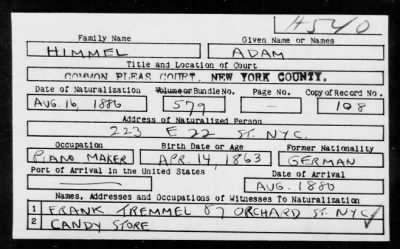 H540
Family Name Given Name or Names
HIMMEL ADAM
Title and Location of Court
COMMON PLEAS COURT, NEW YORK COUNTY.
Date of Naturalization Volume or Bundle No. Page No. Copy of Record No.
AUG. 16, 1886 579 — 108
Address of Naturalized Person
223 E 22 ST. NYC.
Occupation Birth Date or Age Former Nationality
PIANO MAKER APR. 14, 1863 GERMAN
Port of Arrival in the United States Date of Arrival
— AUG. 1880
Names, Addresses and Occupations of Witnesses To Naturalization
1 FRANK TREMMEL 87 ORCHARD ST. NYC
2 CANDY STORE